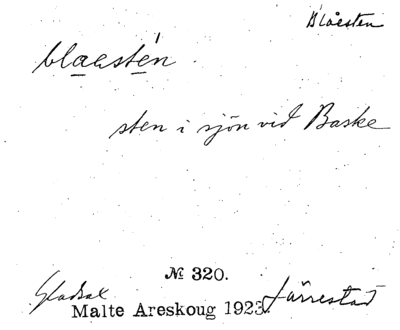 Blåesten
blaestén
sten i sjön vid Baske
№ 320.
Gladsax Järrestad
Malte Areskoug 1923.